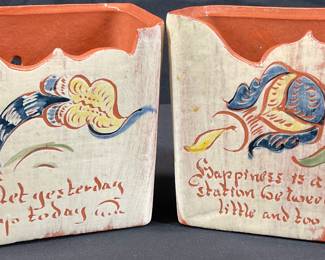 Let yesterday
today
Happiness is a
station betwee
little and too